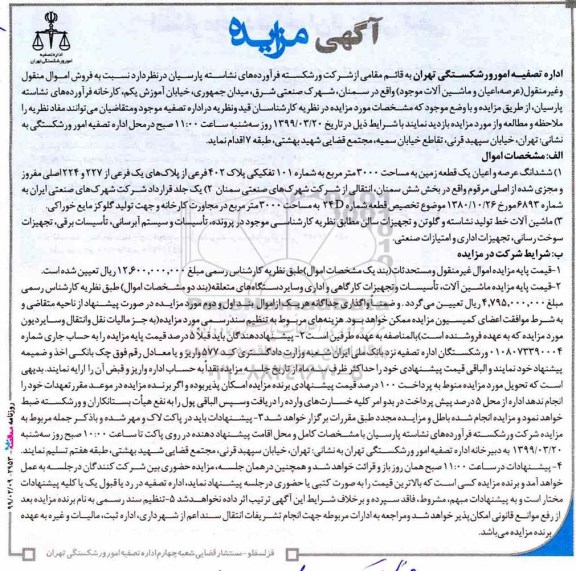 آگهی مزایده
اداره تصفیه
امور ورشکستگی تهران
اداره تصفیه امور ورشکستگی تهران به قائم مقامی از شرکت ورشکسته فرآورده‌های نشاسته پارسیان در نظر دارد نسبت به فروش اموال منقول
وغیرمنقول (عرصه،اعیان و ماشین آلات موجود) واقع در سمنان، شهرک صنعتی شرق، میدان جمهوری، خیابان آموزش یکم، کارخانه فرآورده‌های نشاسته
پارسیان، از طریق مزایده و با وضع موجود که مشخصات مورد مزایده در نظریه کارشناسان قید ونظریه در اداره تصفیه موجود ومتقاضیان می‌توانند مفاد نظریه را
ملاحظه و مطالعه واز مورد مزایده بازدید نمایند با شرایط ذیل در تاریخ ۱۳۹۹/۰۳/۲۰ روز سه‌شنبه ساعت ۱۱:۰۰ صبح در محل اداره تصفیه امور ورشکستگی به
نشانی: تهران، خیابان سپهبد قرنی، تقاطع خیابان سمیه، مجتمع قضایی شهید بهشتی، طبقه ۷ اقدام نماید.
الف: مشخصات اموال
۱) ششدانگ عرصه و اعیان یک قطعه زمین به مساحت ۳۰۰۰ متر مربع به شماره ۱۰۱ تفکیکی پلاک ۴۰۲ فرعی از پلاک‌های یک فرعی از ۲۲۷ و ۲۲۴ اصلی مفروز
و مجزی شده از اصلی مرقوم واقع در بخش شش سمنان، انتقالی از شرکت شهرک‌های صنعتی سمنان ۲) یک جلد قرارداد شرکت شهرک‌های صنعتی ایران به
شماره ۶۸۹۳ مورخ ۱۳۸۰/۱۰/۲۶ موضوع تخصیص قطعه شماره ۲۴D به مساحت ۳۰۰۰ متر مربع در مجاورت کارخانه و جهت تولید گلوکز مایع خوراکی.
۳) ماشین آلات خط تولید نشاسته و گلوتن و تجهیزات سالن مطابق نظریه کارشناسی موجود در پرونده، تأسیسات و سیستم آبرسانی، تأسیسات برقی، تجهیزات
سوخت رسانی، تجهیزات اداری و امتیازات صنعتی.
ب: شرایط شرکت در مزایده
۱-قیمت پایه مزایده اموال غیرمنقول ومستحدثات (بند یک مشخصات اموال) طبق نظریه کارشناس رسمی مبلغ ۱۲,۶۰۰,۰۰۰,۰۰۰ ریال تعیین شده است.
۲-قیمت پایه مزایده ماشین آلات، تأسیسات وتجهیزات کارگاهی و اداری وسایر دستگاه‌های متعلقه (بند دو مشخصات اموال) طبق نظریه کارشناس رسمی
مبلغ ۴,۷۹۵,۰۰۰,۰۰۰ ریال تعیین می‌گردد. و ضمناً واگذاری جداگانه هر یک از اموال بند اول و دوم مورد مزایده در صورت پیشنهاد از ناحیه متقاضی و
به شرط موافقت اعضای کمیسیون مزایده ممکن خواهد بود. هزینه‌های مربوط به تنظیم سند رسمی مورد مزایده (به جز مالیات نقل وانتقال وسایر دیون
مورد مزایده که به عهده فروشنده است) بالمناصفه به عهده طرفین است ۲- پیشنهاد دهندگان باید قبلاً ۵ درصد قیمت پایه مزایده را به حساب جاری شماره
۰۱۰۸۰۷۳۳۹۰۰۴ ورشکستگان اداره تصفیه نزد بانک ملی ایران شعبه وزارت دادگستری کد ۵۷۷ واریز و یا معادل رقم فوق چک بانکی اخذ و ضمیمه
پیشنهاد خود نمایند و الباقی قیمت پیشنهادی خود را حداکثر ظرف یک ماه از تاریخ جلسه مزایده نقداً به حساب اداره واریز و قبض آن را ارایه نمایند. بدیهی
است که تحویل مورد مزایده منوط به پرداخت ۱۰۰ درصد قیمت پیشنهادی برنده مزایده امکان پذیر بوده و اگر برنده مزایده در موعد مقرر تعهدات خود را
انجام ندهد اداره از محل ۵ درصد پیش پرداخت در بدو امر کلیه خسارت‌های وارده را دریافت وسپس الباقی پول را به نفع هیأت بستانکاران و ورشکسته ضبط
خواهد نمود و مزایده انجام شده باطل و مزایده مجدد طبق مقررات برگزار خواهد شد ۳- پیشنهادات باید در پاکت لاک و مهر شده و با ذکر جمله مربوط به
مزایده شرکت ورشکسته فرآورده‌های نشاسته پارسیان با مشخصات کامل و محل اقامت پیشنهاد دهنده در روی پاکت تا ساعت ۱۰:۰۰ صبح روز سه‌شنبه
۱۳۹۹/۰۳/۲۰ به دبیرخانه اداره تصفیه امور ورشکستگی تهران به نشانی: تهران، خیابان سپهبد قرنی، مجتمع قضایی شهید بهشتی، طبقه هفتم تسلیم نمایند.
۴- پیشنهادات در ساعت ۱۱:۰۰ صبح همان روز باز و قرائت خواهد شد و همچنین در همان جلسه، مزایده حضوری بین شرکت کنندگان در جلسه به عمل
خواهد آمد و برنده مزایده کسی است که بالاترین قیمت را به صورت کتبی یا حضوری در جلسه پیشنهاد نماید، اداره تصفیه در رد یا قبول یک یا کلیه پیشنهادات
مختار است و به پیشنهادات مبهم، مشروط، فاقد سپرده و برخلاف شرایط این آگهی ترتیب اثر داده نخواهد شد ۵- تنظیم سند رسمی به نام برنده مزایده بعد
از رفع موانع قانونی امکان پذیر خواهد شد و مراجعه به ادارات مربوطه جهت انجام تشریفات انتقال سند اعم از شهرداری، اداره ثبت، مالیات و غیره به عهده
برنده مزایده می‌باشد.
قزلسفلو - مستشار قضایی شعبه چهارم اداره تصفیه امور ورشکستگی تهران